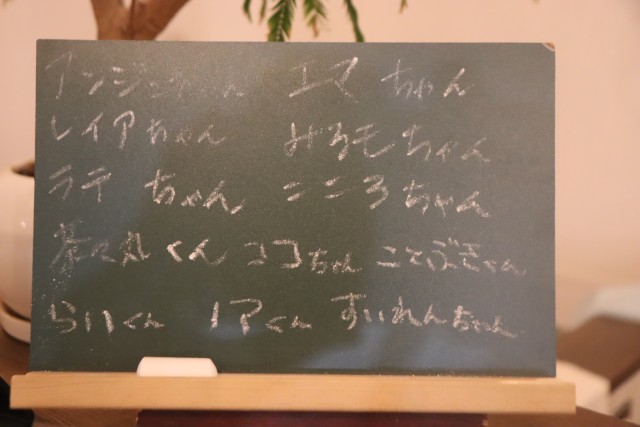 アンジュちゃん エマちゃん
レイアちゃん みるもちゃん
ラテちゃん こころちゃん
茶々丸くん ココちゃん ことぶきちゃん
らいくん ノアくん すいれんちゃん